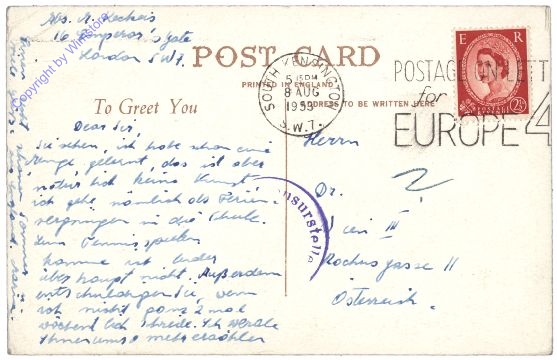 Mrs. A.
16 Emperor's Gate
London SW7.
copyright by Winstore
POST CARD
PRINTED IN ENGLAND
ADDRESS TO BE WRITTEN HERE
To Greet You
SOUTH KENSINGTON
5 15 PM
8 AUG
1953
S.W.7.
E R
2½
POSTAGE ON LETT
for
EUROPE 4
Zensurstelle
Dear Sir,
Sie sehen, ich habe schon eine
Menge gelernt, das ist aber
natürlich keine Kunst
ich gehe nämlich als Ferien-
vergnügen in die Schule.
zum Tennisspielen
komme ich leider
überhaupt nicht. Außerdem
entschuldigen Sie, wenn
ich nicht ganz 2 mal
wöchentlich schreibe. Ich werde
Ihnen umso mehr erzählen
Herrn
Dr.
Wien III
Rochusgasse 11
Österreich.